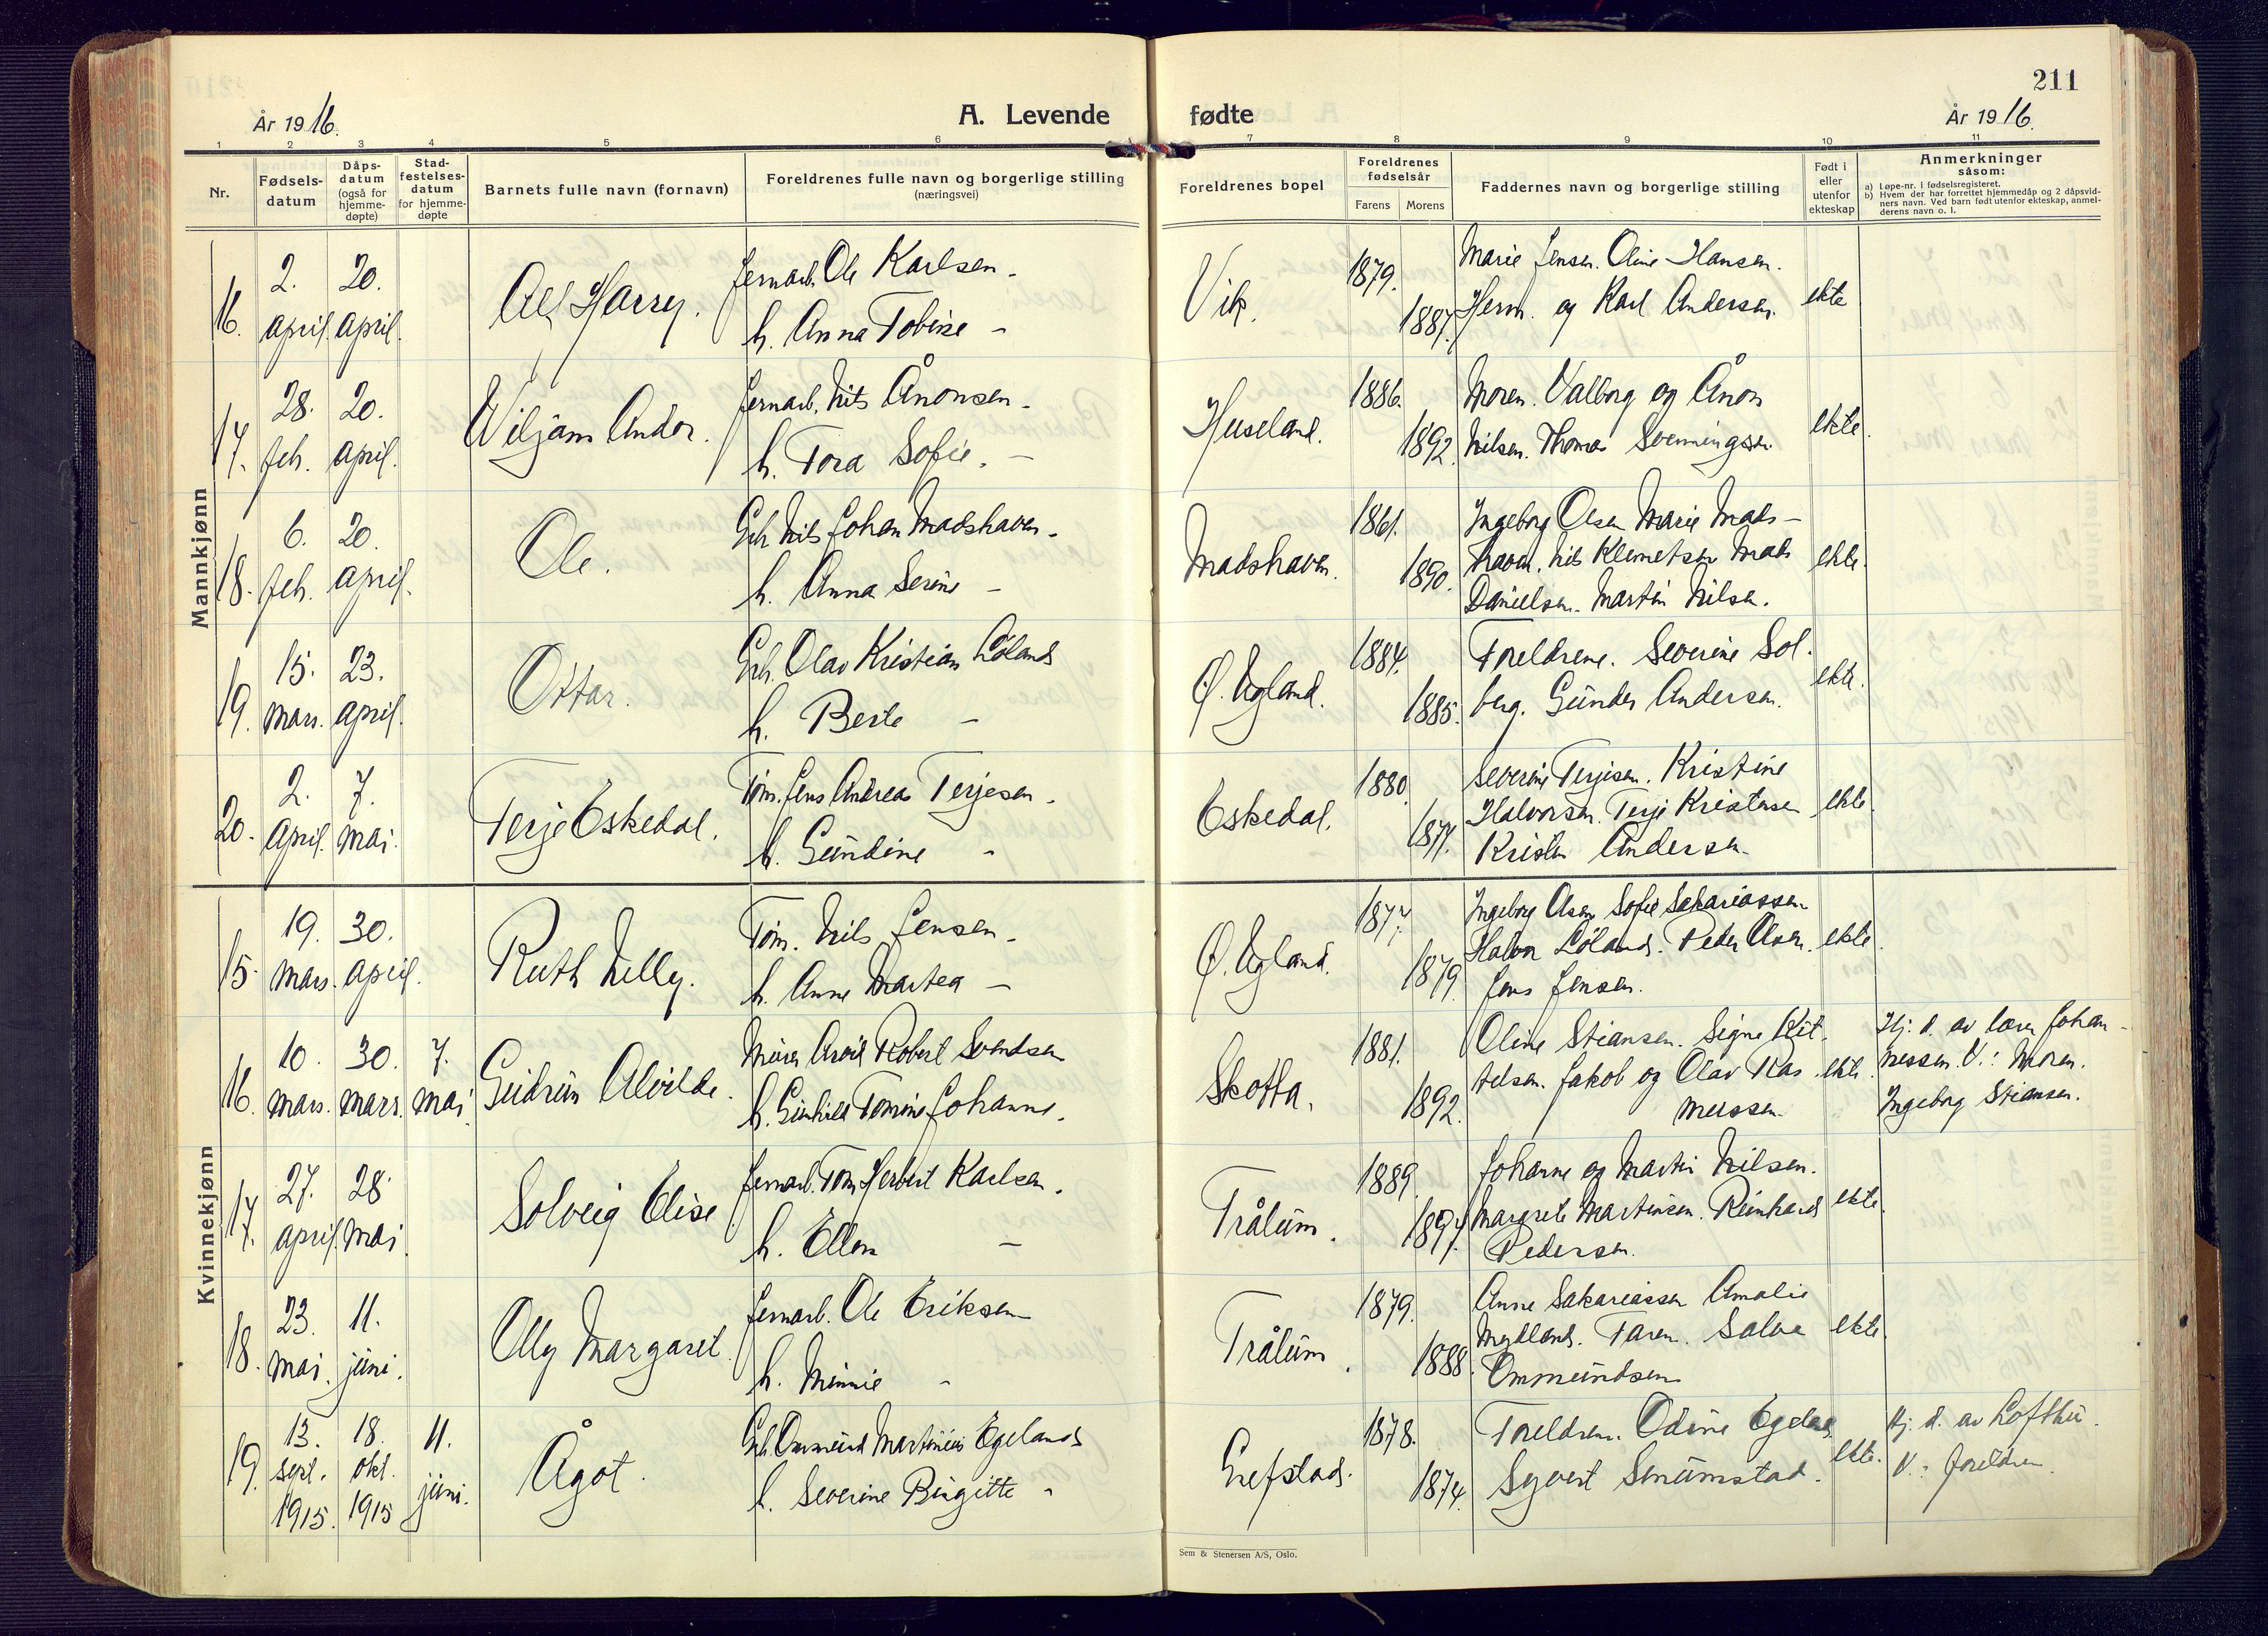 211
År 1916.
A. Levende fødte
År 1916.
1 2 3 4 5 6 7 8 9 10 11
Nr.
Fødsels-
datum
Dåps-
datum
(også for
hjemme-
døpte)
Stad-
festelses-
datum
for hjemme-
døpte
Barnets fulle navn (fornavn)
Foreldrenes fulle navn og borgerlige stilling
(næringsvei)
Foreldrenes bopel
Foreldrenes
fødselsår
Farens
Morens
Faddernes navn og borgerlige stilling
Født i
eller
utenfor
ekteskap
Anmerkninger
såsom:
a) Løpe-nr. i fødselsregisteret.
b) Hvem der har forrettet hjemmedåp og 2 dåpsvid-
ners navn. Ved barn født utenfor ekteskap, anmel-
derens navn o. l.
Mannkjønn
16.
2.
april.
20.
april.
Alf Harry.
Jernarb. Ole Karlsen -
h. Anna Tobine -
Vik.
1879.
1887.
Marie Jensen. Oline Hansen.
Herm. og Karl Andersen.
ekte
17.
28.
feb.
20.
april.
Wiljam Andor.
Jernarb. Nils Ånonsen -
h. Tora Sofie. -
Huseland.
1886.
1892.
Moren. Valborg og Ånon
Nilsen. Thomas Svenningsen.
ekte.
18.
6.
feb.
20.
april.
Ole.
Gbr. Nils Johan Madshaven -
h. Anna Serine -
Madshaven.
1861.
1890.
Ingeborg Olsen Marie Mads-
haven. Nils Klemetsen Mads
Danielsen. Martin Nilsen.
ekte.
19.
15.
mars.
23.
april.
Ottar.
Gbr. Olav Kristian Løland
h. Berte -
Ø. Ugland.
1884.
1885.
Foreldrene. Severine Sol-
berg. Gunder Andersen.
ekte.
20.
2.
april.
7.
mai.
Terje Eskedal.
Tøm. Jens Andreas Terjesen.
h. Gundine -
Eskedal.
1880.
1877.
Severine Terjesen. Kristine
Halvorsen. Terje Kristensen
Kristen Andersen.
ekte.
Kvinnekjønn
15.
19.
mars.
30.
april.
Ruth Nelly.
Tøm. Nils Jensen -
h. Anne Martea -
Ø. Ugland.
1877.
1879.
Ingeborg Olsen Sofie Sakariassen
Halvor Løland. Peder Olsen.
Jens Jensen.
ekte.
16.
10.
mars.
30.
mars.
7.
mai.
Gudrun Alvilde.
Murer Arvid Robert Svendsen
h. Gunhild Tomine Johanne.
Skotta.
1881.
1892.
Oline Stiansen. Signe Kit-
telsen. Jakob og Olav Ras-
mussen.
ekte.
Hj. d. av lærer Johan-
nessen. V.: Moren.
Ingeborg Stiansen.
17.
27.
april.
28.
mai
Solveig Elise
Jernarb. Tom Herbert Karlsen.
h. Ellen -
Trålum.
1889.
1894.
Johanne og Martin Nilsen.
Margrete Martinsen. Reinhard
Pedersen.
ekte.
18.
23.
mai.
11.
juni.
Olly Margaret.
Jernarb. Ole Eriksen
h. Minnie -
Trålum.
1879.
1888.
Anne Sakariassen Amalie
Mydland. Faren. Salve
Ommundsen
ekte.
19.
13.
sept.
1915.
18.
okt.
1915
11.
juni.
Ågot.
Gbr. Ommund Martinius Egeland
h. Severine Birgitte -
Grefstad.
1878.
1874.
Foreldren. Odine Egeland
Syvert Smumstad.
ekte.
Hj. d. av Lofthu.
V.: foreldren.
Sem & Stenersen A/S, Oslo.